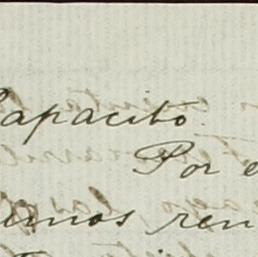 Papacito
Por e
umos ren